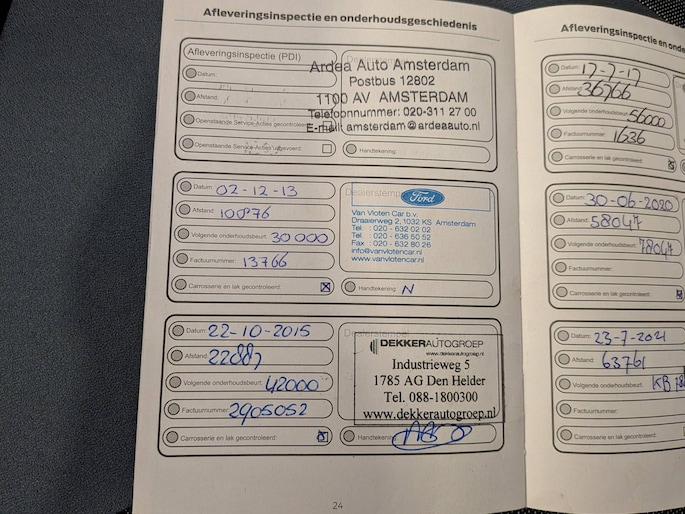 Afleveringsinspectie en onderhoudsgeschiedenis
Afleveringsinspectie (PDI)
Datum:
Afstand:
Openstaande Service-Acties gecontroleerd:
Openstaande Service-Acties uitgevoerd:
Ardea Auto Amsterdam
Postbus 12802
1100 AV AMSTERDAM
Telefoonnummer: 020-311 27 00
E-mail: amsterdam@ardeaauto.nl
Handtekening:
Datum: 02-12-13
Afstand:
Volgende onderhoudsbeurt: 30000
Factuurnummer: 13766
Carrosserie en lak gecontroleerd:
Dealerstempel
Ford
Van Vloten Car b.v.
Draaierweg 2, 1032 KS Amsterdam
Tel. : 020 - 632 02 02
Tel. : 020 - 636 50 52
Fax : 020 - 632 80 26
info@vanvlotencar.nl
www.vanvlotencar.nl
Handtekening: N
Datum: 22-10-2015
Afstand:
Volgende onderhoudsbeurt: 42000
Factuurnummer: 2905052
Carrosserie en lak gecontroleerd:
Dealerstempel
DEKKERAUTOGROEP
www.dekkerautogroep.nl
Industrieweg 5
1785 AG Den Helder
Tel. 088-1800300
www.dekkerautogroep.nl
Handtekening:
24
Afleveringsinspectie en
Datum: 17-7-17
Afstand: 36766
Volgende onderhoudsbeurt: 56000
Factuurnummer: 1636
Carrosserie en lak gecontroleerd:
Datum: 30-06-2020
Afstand: 58047
Volgende onderhoudsbeurt: 78047
Factuurnummer:
Carrosserie en lak gecontroleerd:
Datum: 23-7-2021
Afstand: 63761
Volgende onderhoudsbeurt: KB
Factuurnummer:
Carrosserie en lak gecontroleerd: